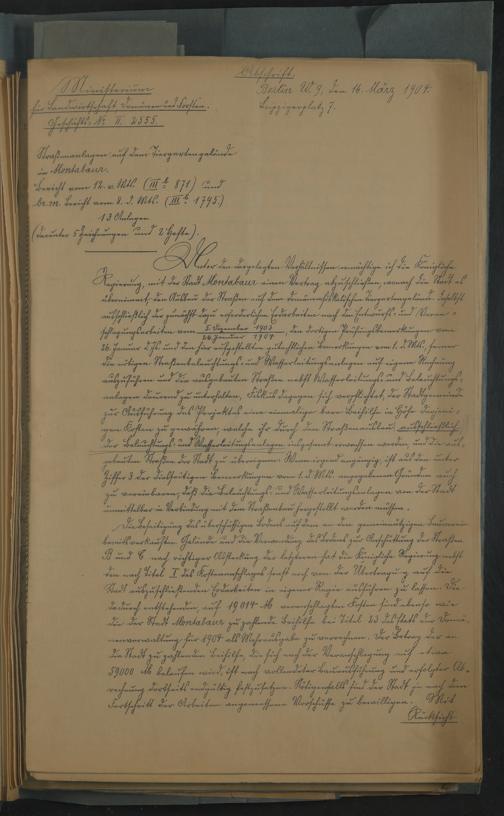 Abschrift
Ministerium
für Landwirtschaft Domänen und Forsten.
Geschäfts. Nr. II. 2555.
Berlin W. 9, den 14. März 1904.
Leipzigerplatz 7.
Straßenanlagen auf dem Tiergartengelände
in Montabaur.
Bericht vom 12. v. Mts. (III b 871) und
br.m. Bericht vom 8. d. Mts. (III b 1745)
13 Anlagen
(darunter 5 Zeichnungen und 2 Hefte).
Unter den dargelegten Verhältnissen ermächtige ich die Königliche
Regierung, mit der Stadt Montabaur einen Vertrag abzuschließen, wonach die Stadt es
übernimmt, den Ausbau der Straßen auf dem domänenfiskalischen Tiergartengelände
ausschließlich der zunächst dazu erforderlichen Erdarbeiten nach den Entwurfs- und Veran-
schlagungsarbeiten vom 5 Dezember 1903 / Januar 1904, den dortigen Prüfungsbemerkungen vom
26. Januar d. Js. und den hier gutachtlichen Bemerkungen vom 1. d. Mts., ferner
die nötigen Straßenbeleuchtungs- und Wasserleitungsanlagen auf eigene Rechnung
auszuführen und die ausgebauten Straßen nebst Wasserleitungs- und Beleuchtungs-
anlagen dauernd zu unterhalten, Fiskus dagegen sich verpflichtet, der Stadtgemeinde
zur Ausführung des Projektes eine einmalige bare Beihilfe in Höhe derjeni-
gen Kosten zu gewähren, welche ihr durch den Straßenausbau ausschließlich
der Beleuchtungs- und Wasserleitungsanlagen insgesamt erwachsen werden, und die aus-
gebauten Straßen der Stadt zu übereignen. Wenn irgend angängig, ist aus den unter
Ziffer 3 der diesseitigen Bemerkungen vom 1. d. Mts. angegebenen Gründen auch
zu vereinbaren, daß die Beleuchtungs- und Wasserleitungsanlagen von der Stadt
unmittelbar in Verbindung mit dem Straßenbau hergestellt werden müssen.
Die Beseitigung des überschüssigen Bodens auf dem an den gemeinnützigen Bauverein
bereits verkauften Gelände und die Verwendung des Bodens zur Aufschüttung der Straßen
B und C nach richtiger Absteckung der letzteren hat die Königliche Regierung nebst
den nach Titel I des Kostenanschlages sonst noch von der Übertragung auf die
Stadt auszuschließenden Erdarbeiten in eigener Regie ausführen zu lassen. Die
dadurch entstehenden, auf 19014 M veranschlagten Kosten sind ebenso wie
die der Stadt Montabaur zu zahlende Beihilfe bei Titel 23 des Etats der Domä-
nenverwaltung für 1904 als Mehrausgabe zu verrechnen. Der Betrag der an
die Stadt zu zahlenden Beihilfe, die sich nach der Veranschlagung auf etwa
39000 M belaufen wird, ist nach vollendeter Bauausführung und erfolgter Ab-
rechnung dortseits endgültig festzusetzen. Nötigenfalls sind der Stadt je nach dem
Fortschritt der Arbeiten angemessene Vorschüsse zu bewilligen. Mit
Rücksicht